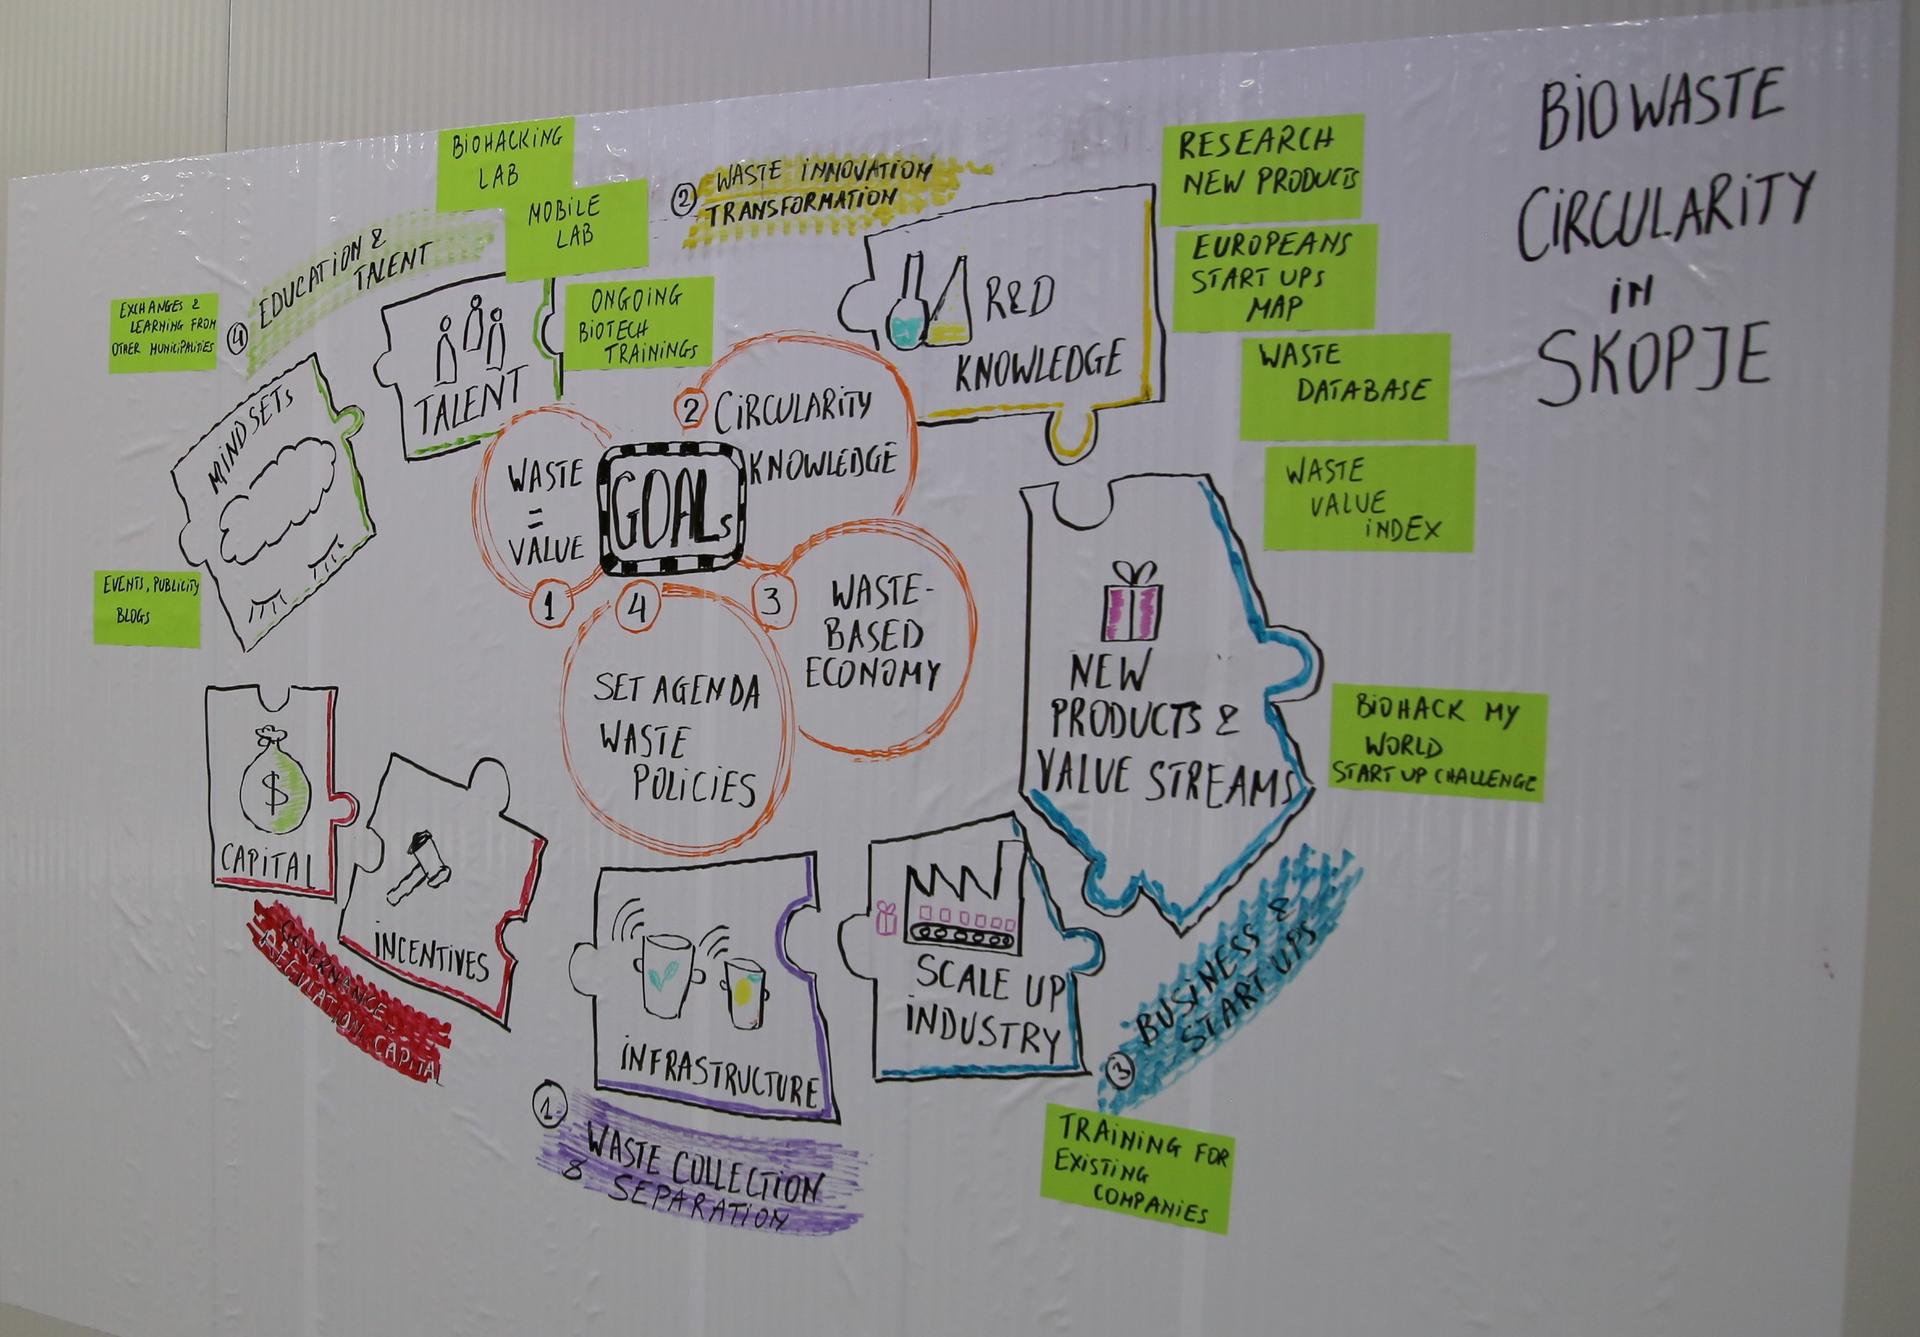 BIOWASTE
CIRCULARITY
IN
SKOPJE
BIOHACKING
LAB
MOBILE
LAB
ONGOING
BIOTECH
TRAININGS
4
EDUCATION &
TALENT
EXCHANGES &
LEARNING FROM
OTHER MUNICIPALITIES
MINDSETS
TALENT
EVENTS, PUBLICITY
BLOGS
2
WASTE INNOVATION
TRANSFORMATION
R&D
KNOWLEDGE
RESEARCH
NEW PRODUCTS
EUROPEANS
START UPS
MAP
WASTE
DATABASE
WASTE
VALUE
INDEX
GOALs
WASTE
=
VALUE
1
2
CIRCULARITY
KNOWLEDGE
3
WASTE-
BASED
ECONOMY
4
SET AGENDA
WASTE
POLICIES
NEW
PRODUCTS &
VALUE STREAMS
BIOHACK MY
WORLD
START UP CHALLENGE
$
CAPITAL
INCENTIVES
GOVERNANCE
REGULATION CAPITAL
INFRASTRUCTURE
1
WASTE COLLECTION
& SEPARATION
SCALE UP
INDUSTRY
3
BUSINESS &
START UPS
TRAINING FOR
EXISTING
COMPANIES